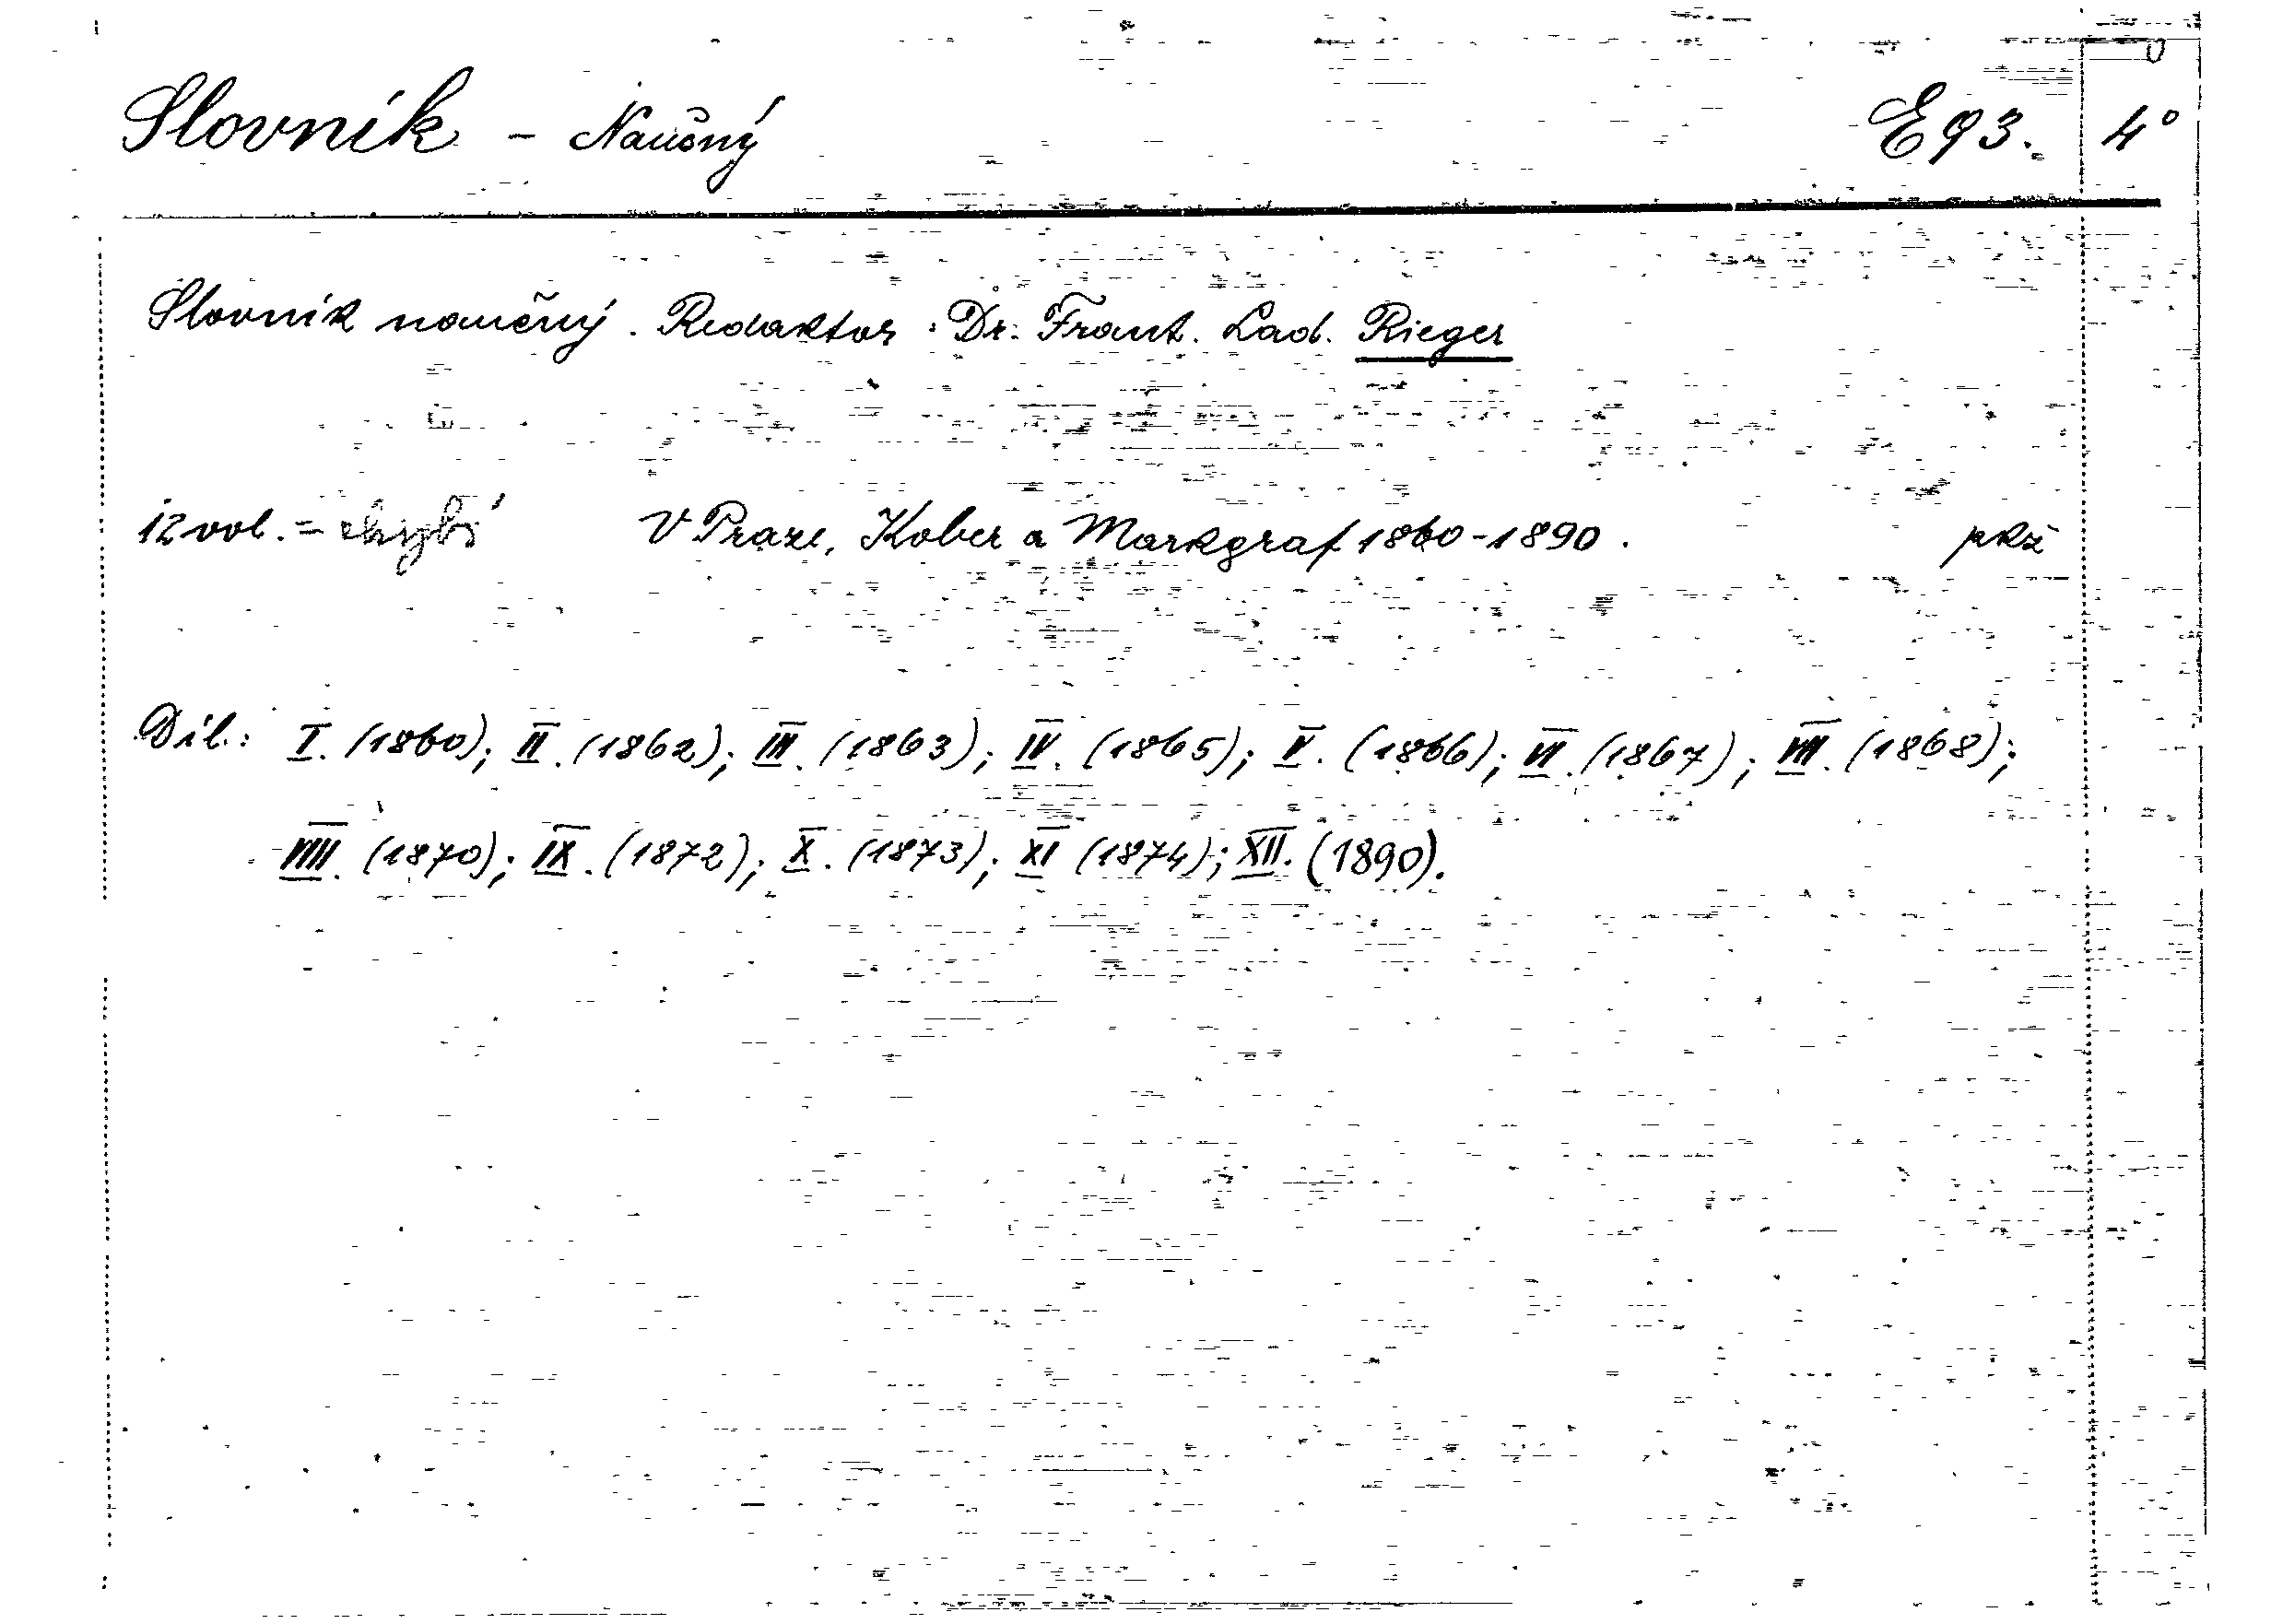 Slovník - Naučný E 93. 4°
Slovník naučný. Redaktor: Dr. Frant. Lad. Rieger
12 vol. = chybí V Praze, Kober a Markgraf 1860-1890. pkž
Díl.: I. (1860); II. (1862); III. (1863); IV. (1865); V. (1866); VI. (1867); VII. (1868);
VIII. (1870); IX. (1872); X. (1873); XI (1874); XII. (1890).